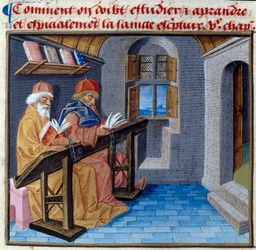 Comment on doibt estudier & aprandre
et especialement la saincte escriptur. V.e chap.e